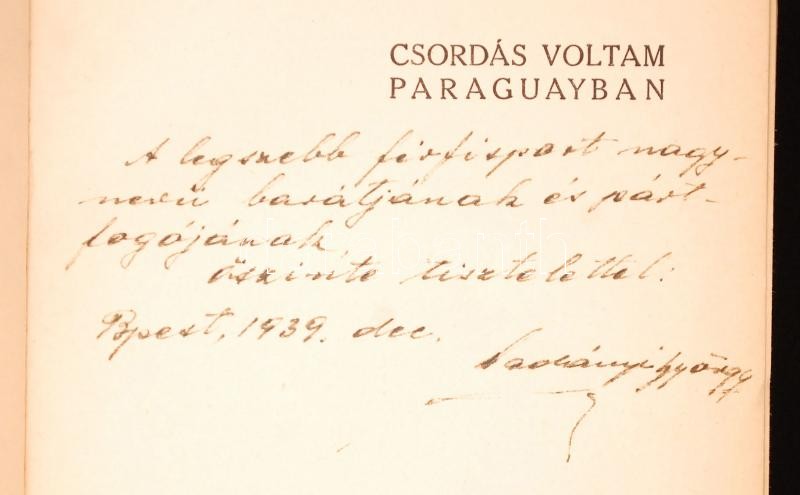 CSORDÁS VOLTAM
PARAGUAYBAN
A legszebb férfisport nagy-
nevű barátjának és párt-
fogójának
őszinte tisztelettel:
Bpest, 1939. dec.
György